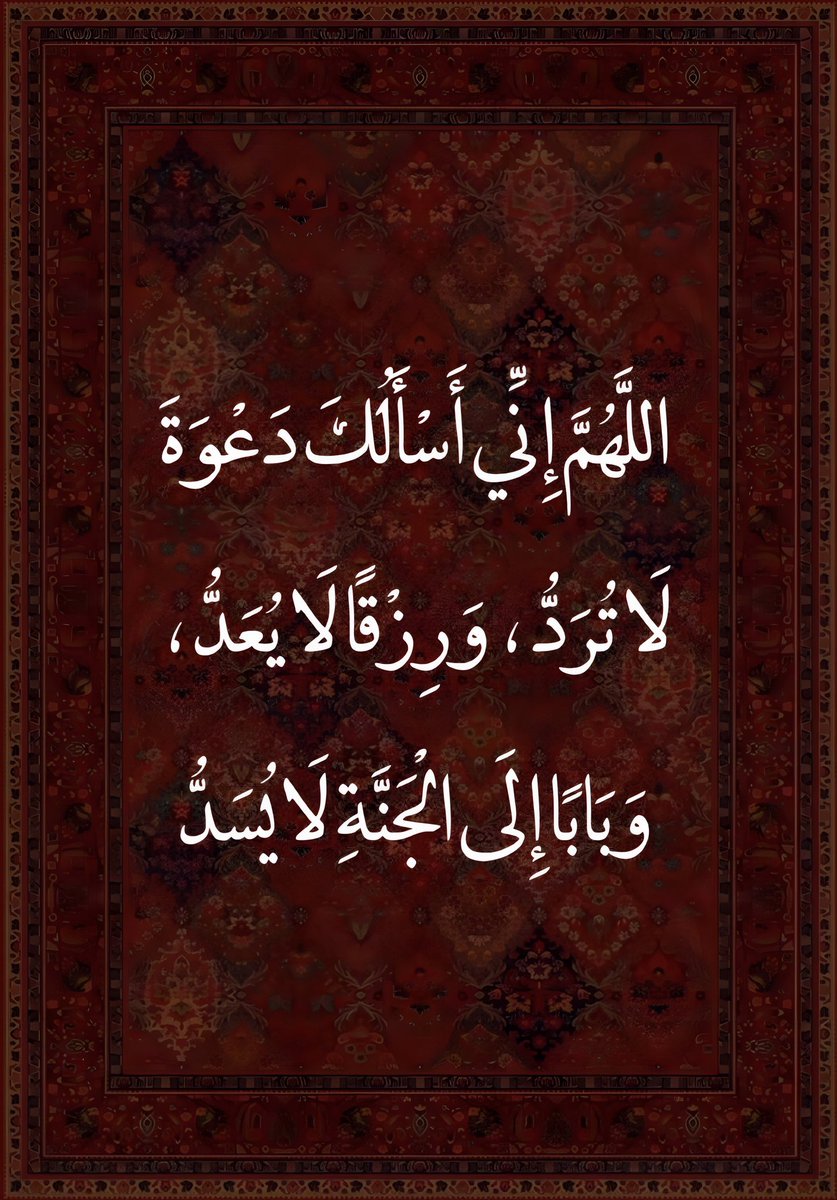 اللَّهُمَّ إِنِّي أَسْأَلُكَ دَعْوَةَ
لَا تُرَدُّ، وَرِزْقًا لَا يُعَدُّ،
وَبَابًا إِلَى الْجَنَّةِ لَا يُسَدُّ